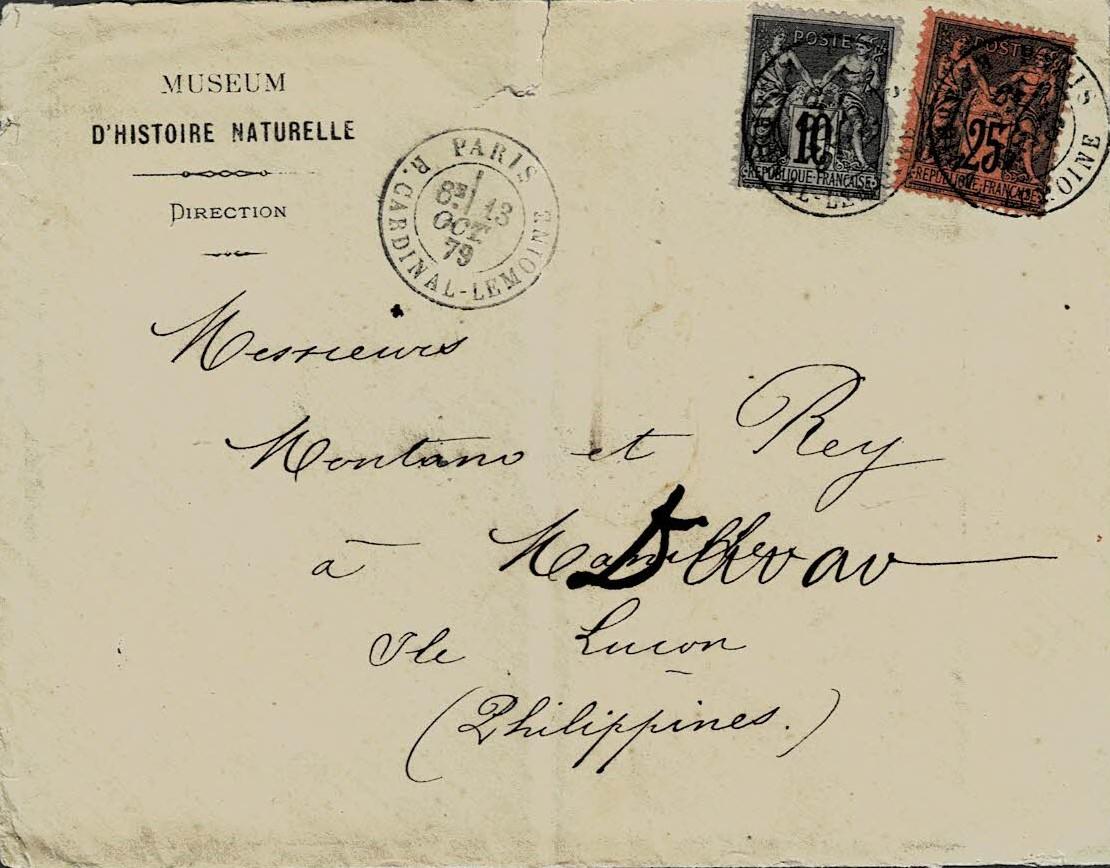 MUSEUM
D'HISTOIRE NATURELLE
DIRECTION
R. CARDINAL-LEMOINE
PARIS
13
OCT
79
POSTES
10
REPUBLIQUE FRANÇAISE
POSTES
25
REPUBLIQUE FRANÇAISE
Messieurs
Montano et Rey
à Manille Davao
Ile Luçon
(Philippines.)